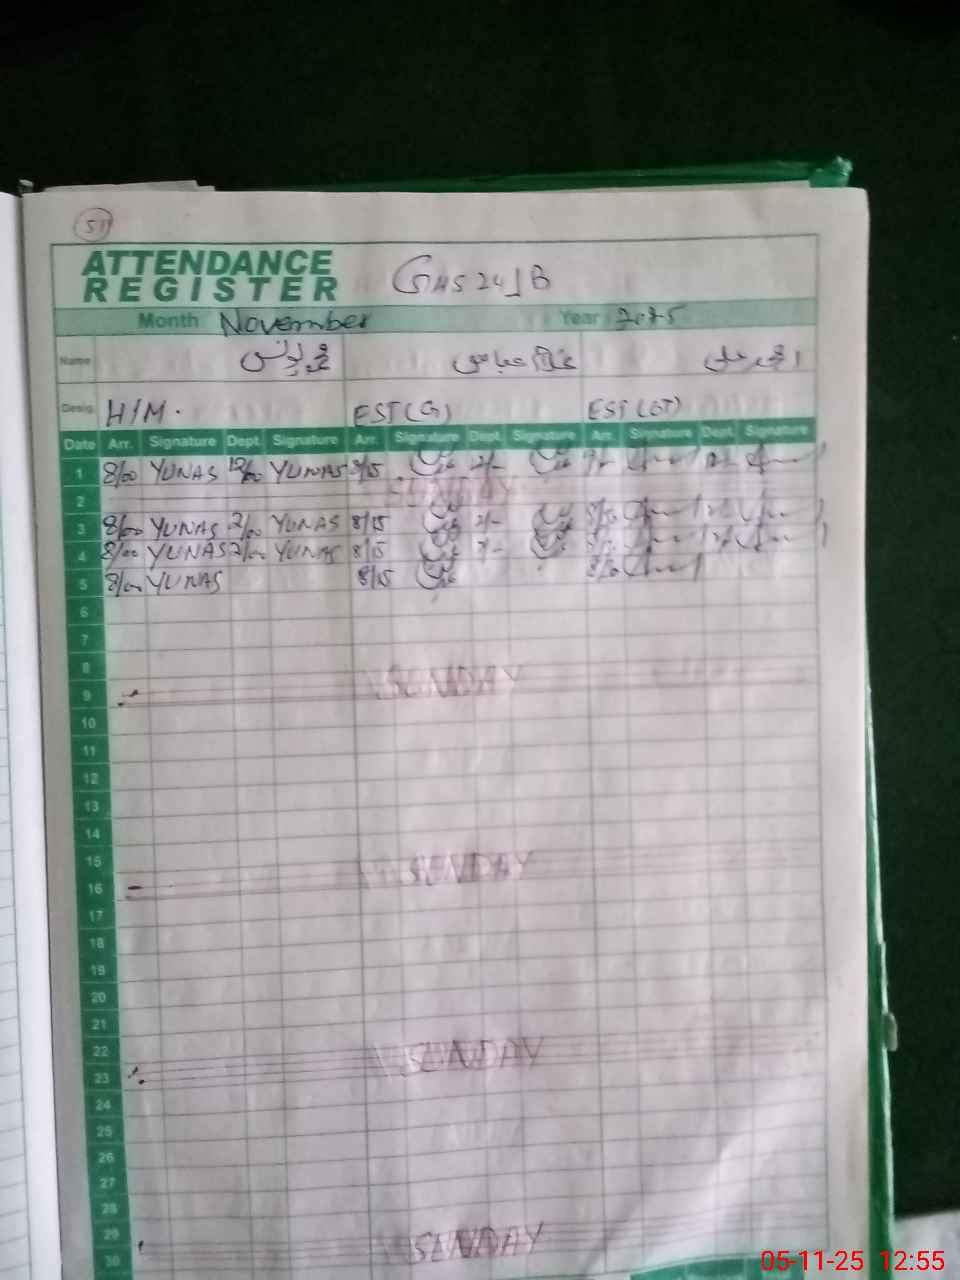 51
ATTENDANCE
REGISTER
GHS 241 B
Month November Year 2025
Name محمد یونس غلام عباس احمد علی
Desig. H/M. EST(G) EST(GT)
Date Arr. Signature Dept. Signature Arr. Signature Dept. Signature Arr. Signature Dept. Signature
1 8/00 YUNAS 12/00 YUNAS 8/15
2 SUNDAY
3 8/00 YUNAS 2/00 YUNAS 8/15 2/-
4 8/00 YUNAS 2/00 YUNAS 8/15 2/-
5 8/00 YUNAS 8/15
6
7
8
9 SUNDAY
10
11
12
13
14
15
16 SUNDAY
17
18
19
20
21
22
23 SUNDAY
24
25
26
27
28
29
30 SUNDAY
05-11-25 12:55